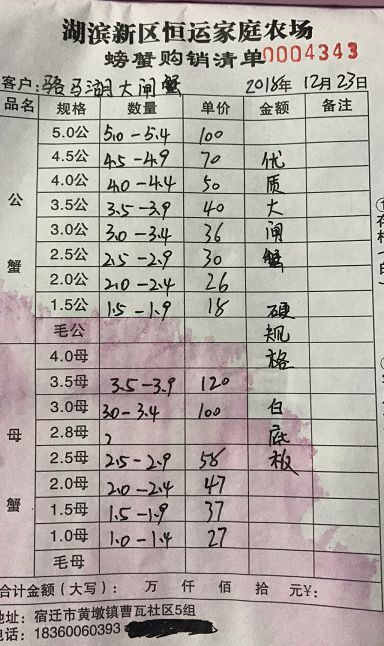 湖滨新区恒运家庭农场
螃蟹购销清单0004343
客户：骆马湖大闸蟹 2018年12月23日
品名 规格 数量 单价 金额 备注
公蟹
5.0公 5.0-5.4 100
4.5公 4.5-4.9 70 优
4.0公 4.0-4.4 50 质
3.5公 3.5-3.9 40 大
3.0公 3.0-3.4 36 闸
2.5公 2.5-2.9 30 蟹
2.0公 2.0-2.4 26
1.5公 1.5-1.9 18 硬
毛公 规
母蟹
4.0母 格
3.5母 3.5-3.9 120
3.0母 3.0-3.4 100 白
2.8母 底
2.5母 2.5-2.9 58 板
2.0母 2.0-2.4 47
1.5母 1.5-1.9 37
1.0母 1.0-1.4 27
毛母
合计金额（大写）： 万 仟 佰 拾 元¥：
地址：宿迁市黄墩镇曹瓦社区5组
电话：18360060393